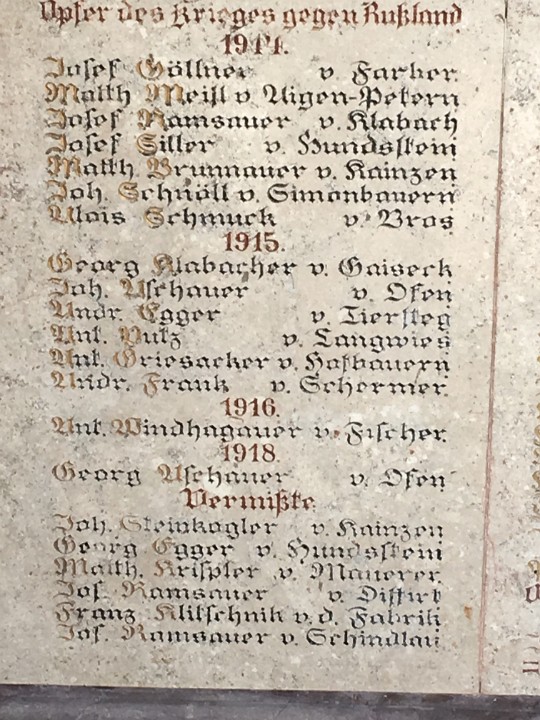 Opfer des Krieges gegen Rußland
1914.
Josef Göllner v. Farber.
Matth Meißl v Aigen-Petern
Josef Ramsauer v. Klabach
Josef Siller v. Hundsstein
Matth. Brunnauer v. Kainzen
Joh. Schnöll v. Simonbauern
Alois Schmuck v. Bros
1915.
Georg Klabacher v. Gaiseck
Joh. Aschauer v. Ofen
Andr. Egger v. Tiersteg
Ant. Putz v. Langwies
Ant. Griesacker v. Hofbauern
Andr. Frank v. Schermer.
1916.
Ant. Windhagauer v. Fischer.
1918.
Georg Aschauer v. Ofen
Vermißte.
Joh. Steinkogler v. Kainzen
Georg Egger v. Hundsstein
Matth. Krispler v. Mauerer.
Jos. Ramsauer v.
Franz Klitschnik v. d. Fabrik
Jos. Ramsauer v. Schindlau